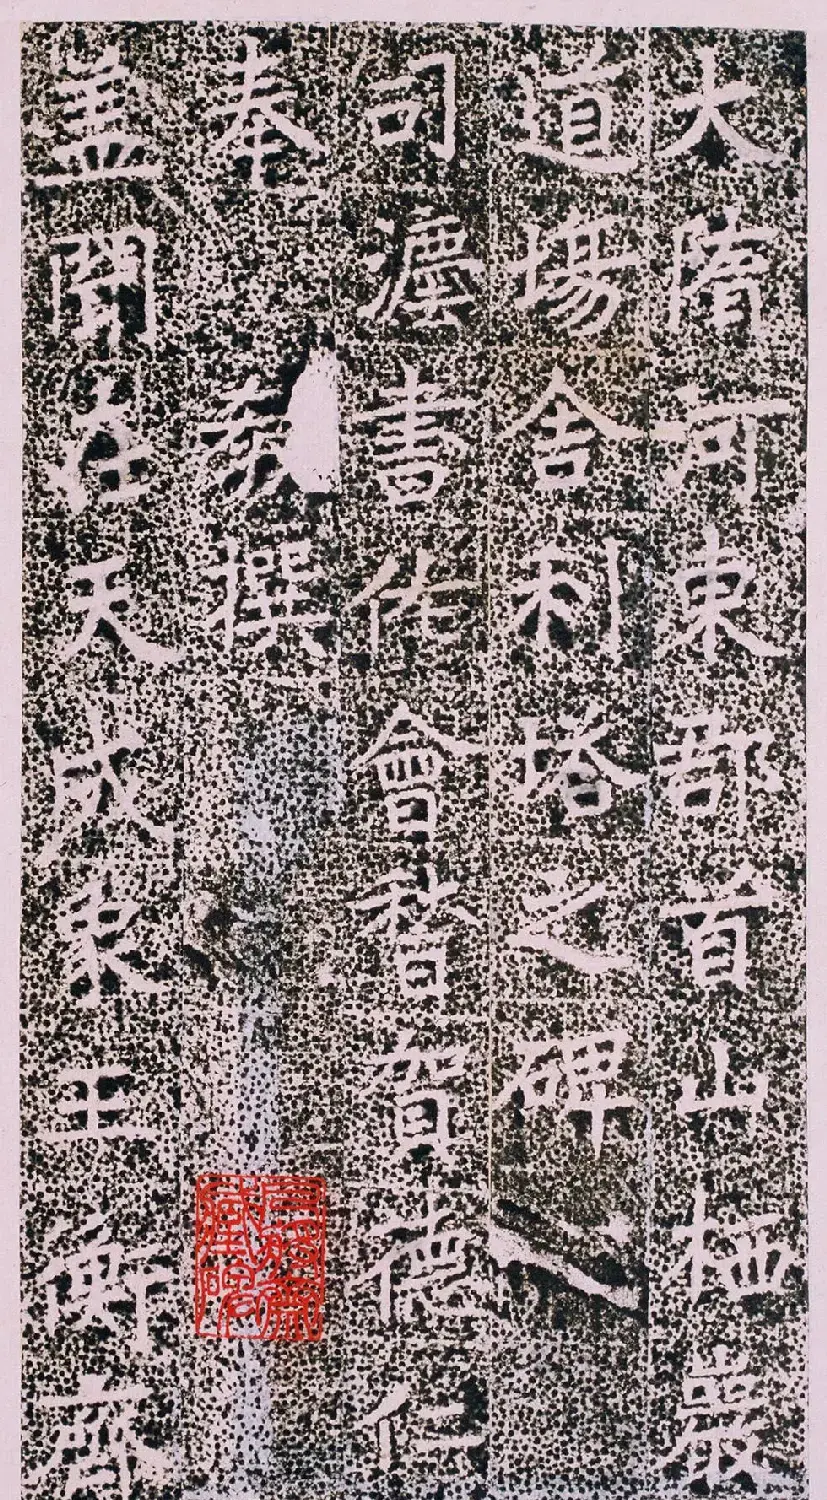 大隋河東郡首山栖巖
道場舍利塔之碑
司灋書佐會稽賀德仁
奉敕撰
盖聞在天成象玉衡齊